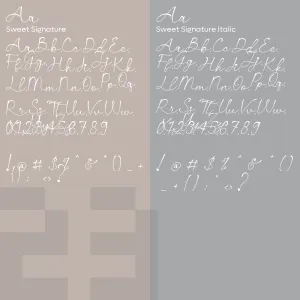 Aa
Sweet Signature
Aa Bb Cc Dd Ee
Ff Gg Hh Ii Jj Kk
Ll Mm Nn Oo Pp Qq
Rr Ss Tt Uu Vv Ww
0 1 2 3 4 5 6 7 8 9
! @ # $ % ^ & * ( ) _ +
Aa
Sweet Signature Italic
Aa Bb Cc Dd Ee
Ff Gg Hh Ii Jj Kk
Ll Mm Nn Oo Pp Qq
Rr Ss Tt Uu Vv Ww
0 1 2 3 4 5 6 7 8 9
! @ # $ % ^ & * ( )